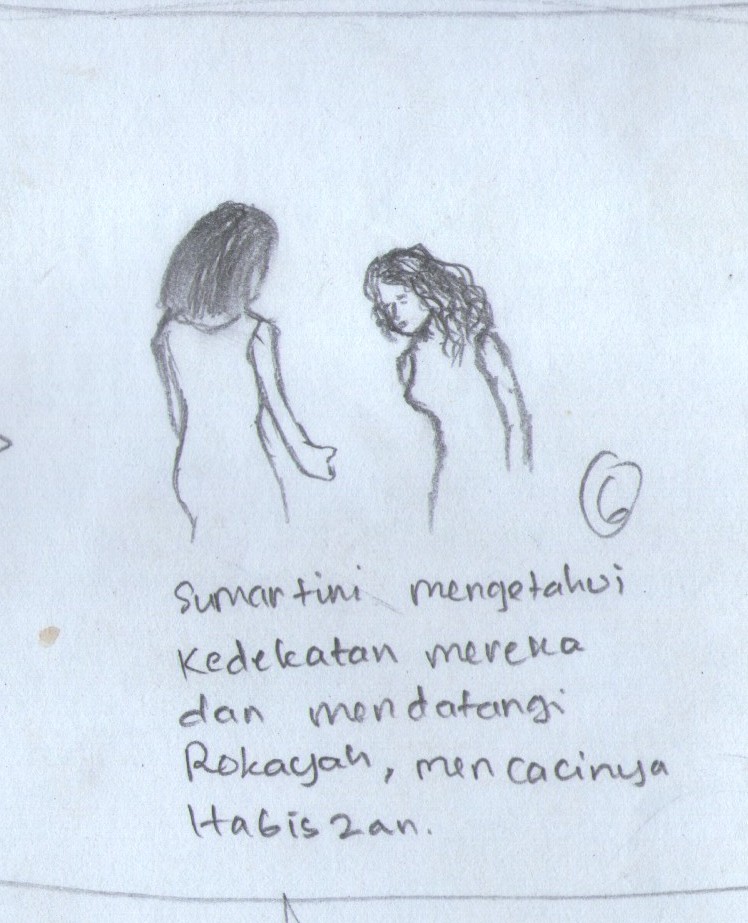 6
Sumartini mengetahui
Kedekatan mereka
dan mendatangi
Rokayah, mencacinya
Habis2an.